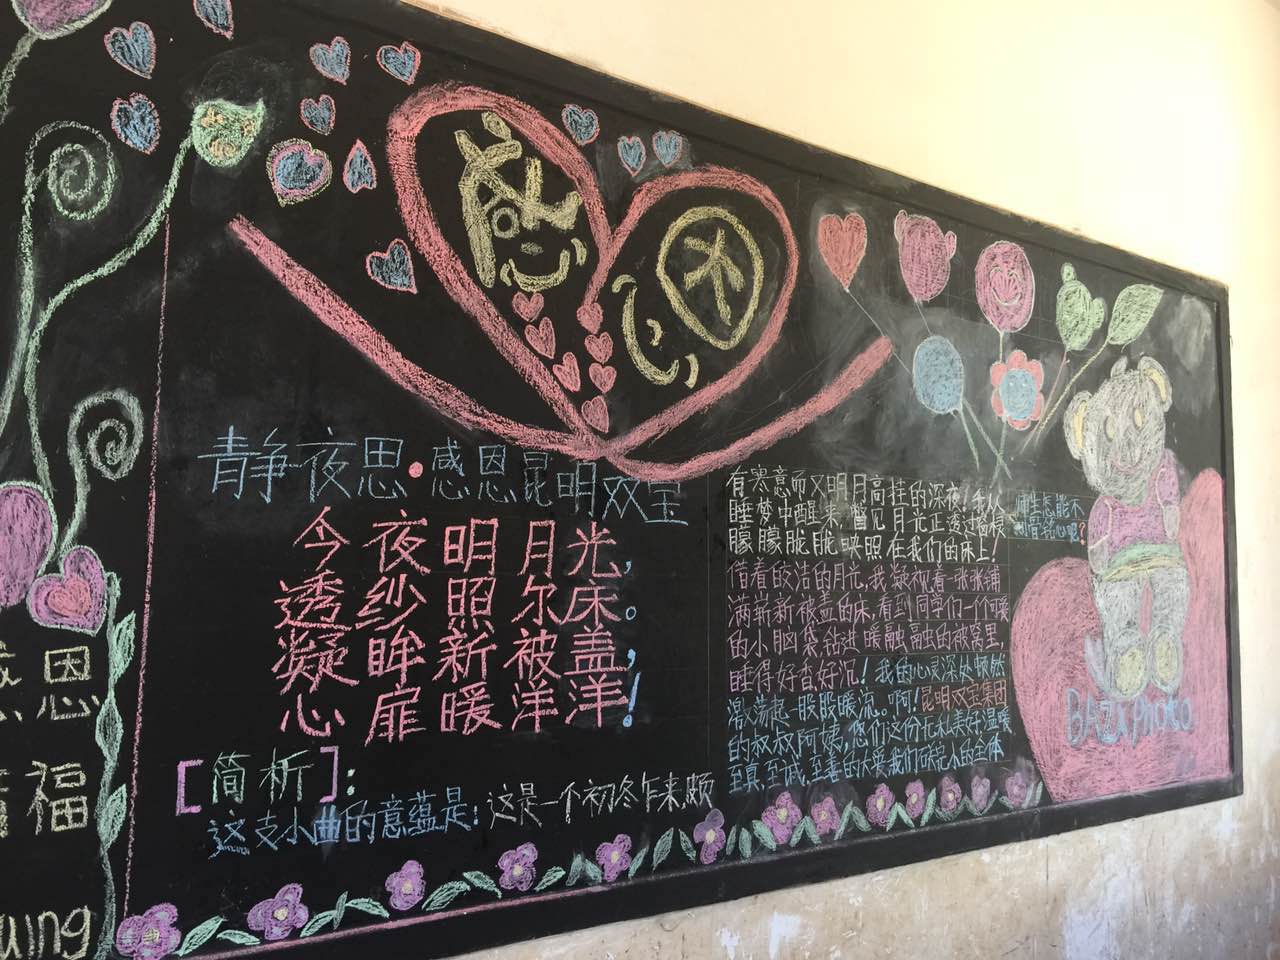 感恩
静夜思·感恩昆明双宝
今夜明月光,
透纱照尔床。
凝眸新被盖,
心扉暖洋洋!
[简析]:
这支小曲的意蕴是:这是一个初冬乍来,颇
有寒意而又明月高挂的深夜!我从
睡梦中醒来,瞥见月光正透过窗棂
朦朦胧胧映照在我们的床上!
借着皎洁的月光,我凝视着一张张铺
满崭新被盖的床,看到同学们一个个可爱
的小脑袋钻进暖融融的被窝里,
睡得好香好沉!我的心灵深处顿然
激荡起一股股暖流。啊!昆明双宝集团
的叔叔阿姨,您们这份无私美好温暖
至真,至诚,至善的大爱我们石桩小的全体
师生怎能不
刻骨铭心呢?
恩
福
uing